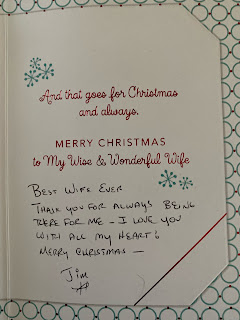 And that goes for Christmas
and always.
MERRY CHRISTMAS
to My Wise & Wonderful Wife
BEST WIFE EVER
THANK YOU FOR ALWAYS BEING
THERE FOR ME - I LOVE YOU
WITH ALL MY HEART!
MERRY CHRISTMAS -
Jim